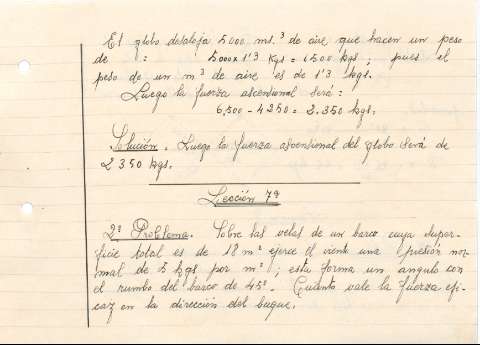 El globo desaloja 5000 ms.³ de aire que hacen un peso
de : 5000 x 1'3 kgs = 6500 kgs; pues el
peso de un m³ de aire es de 1'3 kgs.
Luego la fuerza ascensional será:
6,500 - 4250 = 2.350 kgs.
Solución. Luego la fuerza ascensional del globo será de
2350 kgs.
Lección 7ª
2º Problema. Sobre las velas de un barco cuya super-
ficie total es de 18 m² ejerce el viento una presión nor-
mal de 5 kgs por m²; esta forma un angulo con
el rumbo del barco de 45º. Cuanto vale la fuerza efi-
caz en la dirección del buque.